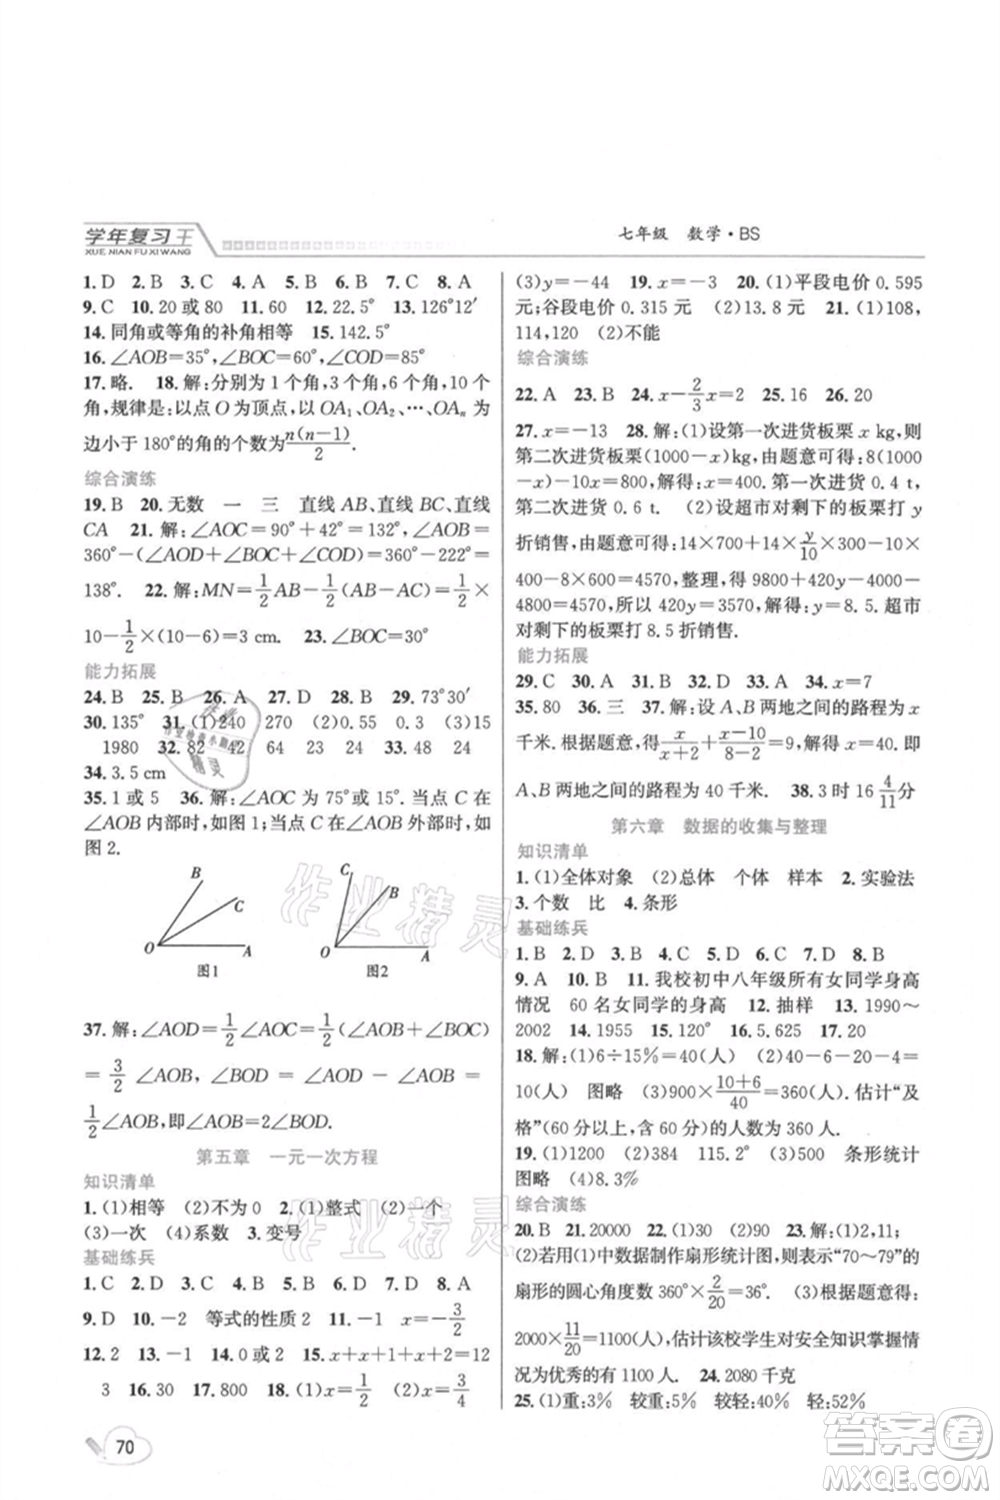 学年复习王
XUE NIAN FU XI WANG
七年级 数学·BS
1. D 2. B 3. C 4. B 5. B 6. C 7. C 8. A
9. C 10. 20 或 80 11. 60 12. 22.5° 13. 126°12′
14. 同角或等角的补角相等 15. 142.5°
16. ∠AOB=35°,∠BOC=60°,∠COD=85°
17. 略. 18. 解:分别为 1 个角,3 个角,6 个角,10 个
角,规律是:以点 O 为顶点,以 OA₁、OA₂、…、OAₙ 为
边小于 180°的角的个数为n(n−1)/2.
综合演练
19. B 20. 无数 一 三 直线 AB、直线 BC、直线
CA 21. 解:∠AOC=90°+42°=132°,∠AOB=
360°−(∠AOD+∠BOC+∠COD)=360°−222°=
138°. 22. 解:MN=1/2AB−1/2(AB−AC)=1/2×
10−1/2×(10−6)=3 cm. 23. ∠BOC=30°
能力拓展
24. B 25. B 26. A 27. A 28. B 29. 73°30′
30. 135° 31. (1)240 270 (2)55 0.3 (3)15
1980 32. 82 42 33. 42
34. 3.5 cm
35. 1 或 5 36. 解:∠AOC 为 75°或 15°;当点 C 在
∠AOB 内部时,如图 1;当点 C 在∠AOB 外部时,如
图 2.
B C O A 图1
C B O A 图2
37. 解:∠AOD=1/2∠AOC=1/2(∠AOB+∠BOC)
=3/2∠AOB,∠BOD=∠AOD−∠AOB=
1/2∠AOB,即∠AOB=2∠BOD.
第五章 一元一次方程
知识清单
1. (1)相等 (2)不为 0 2. (1)整式 (2)一个
(3)一次 (4)系数 3. 变号
基础练兵
1. C 2. D 3. D 4. B 5. B 6. C 7. D 8. A
9. D 10. −2 等式的性质 2 11. x=−3/2
12. 2 13. −1 14. 0 或 2 15. x+x+1+x+2=12
3 16. 30 17. 800 18. (1)x=1/3 (2)x=3/4
(3)y=−44 19. x=−3 20. (1)平段电价 0.595
元;谷段电价 0.315 元 (2)13.8 元 21. (1)108,
114,120 (2)不能
综合演练
22. A 23. B 24. x−2/3x=2 25. 16 26. 20
27. x=−13 28. 解:(1)设第一次进货板栗 x kg,则
第二次进货板栗(1000−x)kg,由题意可得:(1000
−x)−10x=800,解得:x=400. 第一次进货 0.4 t,
第二次进货 0.6 t. (2)设超市对剩下的板栗打 y
折销售,由题意可得:14×400+14×y/10×400−10×
400−8×600=4570,整理,得 9800+1120y−4000−
4800=4570,所以,1120y=3570,解得:y=8.5. 超市
对剩下的板栗打 8.5 折销售.
能力拓展
29. C 30. A 31. C 32. C 33. D 34. x=7
35. 80 36. 三 37. 解:设 A、B 两地之间的路程为 x
千米. 根据题意,得:x/(8+2)+(x−10)/(8−2)=9,解得x=40. 即
A、B 两地之间的路程为 40 千米. 38. 3 时 16 4/11分
第六章 数据的收集与整理
知识清单
1. (1)全体对象 (2)总体 个体 样本 2. 实验法
3. 个数 比 4. 条形
基础练兵
1. B 2. D 3. D 4. B 5. B 6. C 7. D 8. B
9. A 10. B 11. 我校初中八年级所有女同学身高
情况 60 名女同学的身高 12. 抽样 13. 1990～
2002 14. 1955 15. 120° 16. 5,625 17. 20
18. 解:(1)6÷15%=40(人) (2)40−20−6−4=
10(人) 图略 (3)900×(10+6)/40=360(人). 估计“及
格”(60 分以上,含 60 分)的人数为 360 人.
19. (1)1200 (2)54 115.2° (3)500 条形统计
图略 (4)8.3%
综合演练
20. B 21. 20000 22. (1)20 (2)90 23. 解:(1)2,11;
(2)若用(1)中数据制作扇形统计图,则表示“70～79”的
扇形的圆心角度数 360°×2/20=36°. (3)根据题意得:
2000×11/20=1100(人),估计该校学生对安全知识掌握情
况为优秀的有 1100 人. 24. 2080 千克
25. (1)重:3% 较重:5% 较轻:40% 轻:52%
70
作业精灵
作业精灵
答案圈
MXQE.COM